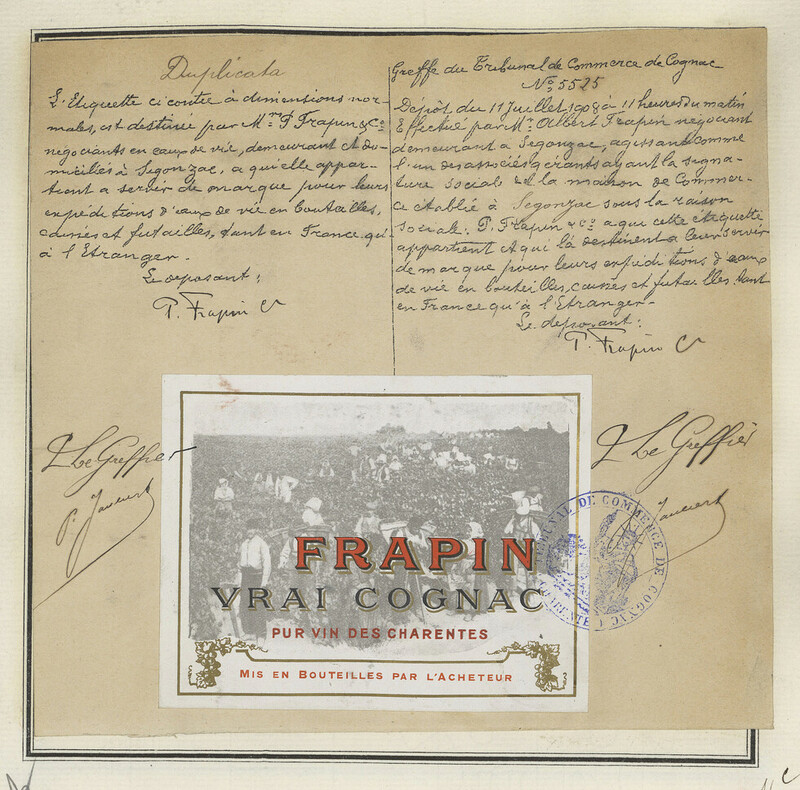 Duplicata
L'Etiquette ci contre à dimensions nor-
males, est destiné par Mrs P. Frapin & Co
negociants en eaux de vie, demeurant et do-
miciliés à Segonzac, a qu'elle appar-
tient a servir de marque pour leurs
expéditions d'eaux de vie en bouteilles,
caisses et futailles, tant en France qu'
à l'Etranger.
Le deposant:
P. Frapin Co
Greffe du Tribunal de Commerce de Cognac
No. 5525
Dépôt du 11 Juillet 1908 à 11 heures du matin
Effectué par Mr. Albert Frapin négociant
demeurant a Segonzac, agissant comme
l'un des associés gérants ayant la signa-
ture sociale et la maison de Commer-
ce établie à Segonzac sous la raison
sociale: P. Frapin & Co a qui cette étiquette
appartient et qui la destinent a leur servir
de marque pour leurs expéditions d'eaux
de vie en bouteilles, caisses et futailles tant
en France qu'à l'Etranger-
Le deposant:
P. Frapin Co
Le Greffier
Le Greffier
TRIBUNAL DE COMMERCE DE COGNAC
CHARENTE
FRAPIN
VRAI COGNAC
PUR VIN DES CHARENTES
MIS EN BOUTEILLES PAR L'ACHETEUR